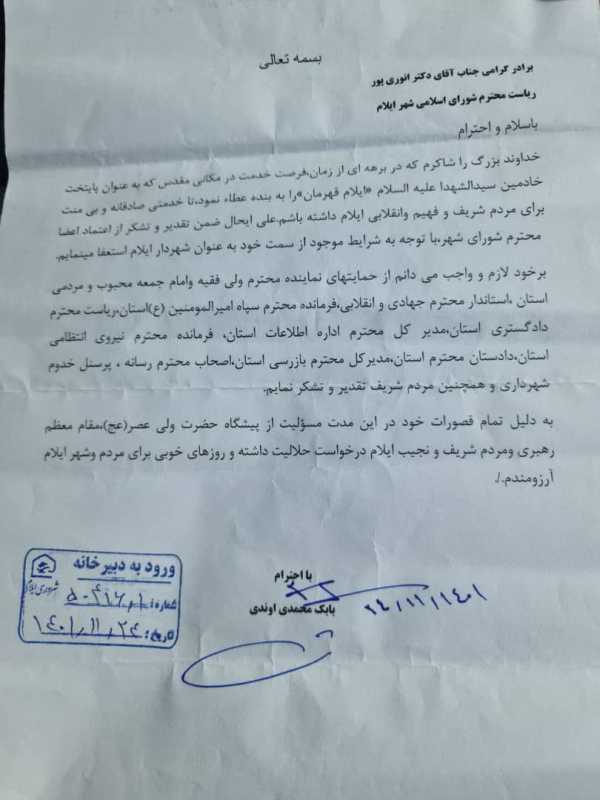 بسمه تعالی
برادر گرامی جناب آقای دکتر انوری پور
ریاست محترم شورای اسلامی شهر ایلام
باسلام و احترام
خداوند بزرگ را شاکرم که در برهه ای از زمان،فرصت خدمت در مکانی مقدس که به عنوان پایتخت
خادمین سیدالشهدا علیه السلام «ایلام قهرمان»را به بنده عطاء نمود،تا خدمتی صادقانه و بی منت
برای مردم شریف و فهیم وانقلابی ایلام داشته باشم.علی ایحال ضمن تقدیر و تشکر از اعتماد اعضا
محترم شورای شهر،با توجه به شرایط موجود از سمت خود به عنوان شهردار ایلام استعفا مینمایم.
برخود لازم و واجب می دانم از حمایتهای نماینده محترم ولی فقیه وامام جمعه محبوب و مردمی
استان ،استاندار محترم جهادی و انقلابی،فرمانده محترم سپاه امیرالمومنین (ع)استان،ریاست محترم
دادگستری استان،مدیر کل محترم اداره اطلاعات استان، فرمانده محترم نیروی انتظامی
استان،دادستان محترم استان،مدیرکل محترم بازرسی استان،اصحاب محترم رسانه ، پرسنل خدوم
شهرداری و همچنین مردم شریف تقدیر و تشکر نمایم.
به دلیل تمام قصورات خود در این مدت مسؤلیت از پیشگاه حضرت ولی عصر(عج)،مقام معظم
رهبری ومردم شریف و نجیب ایلام درخواست حلالیت داشته و روزهای خوبی برای مردم وشهر ایلام
آرزومندم./.
با احترام
بابک محمدی اوندی
۲۴/۱۱/۱۴۰۱
ورود به دبیرخانه
شهرداری ایلام
شماره:
تاریخ: ۱۴۰۱/۱۱/۲۴